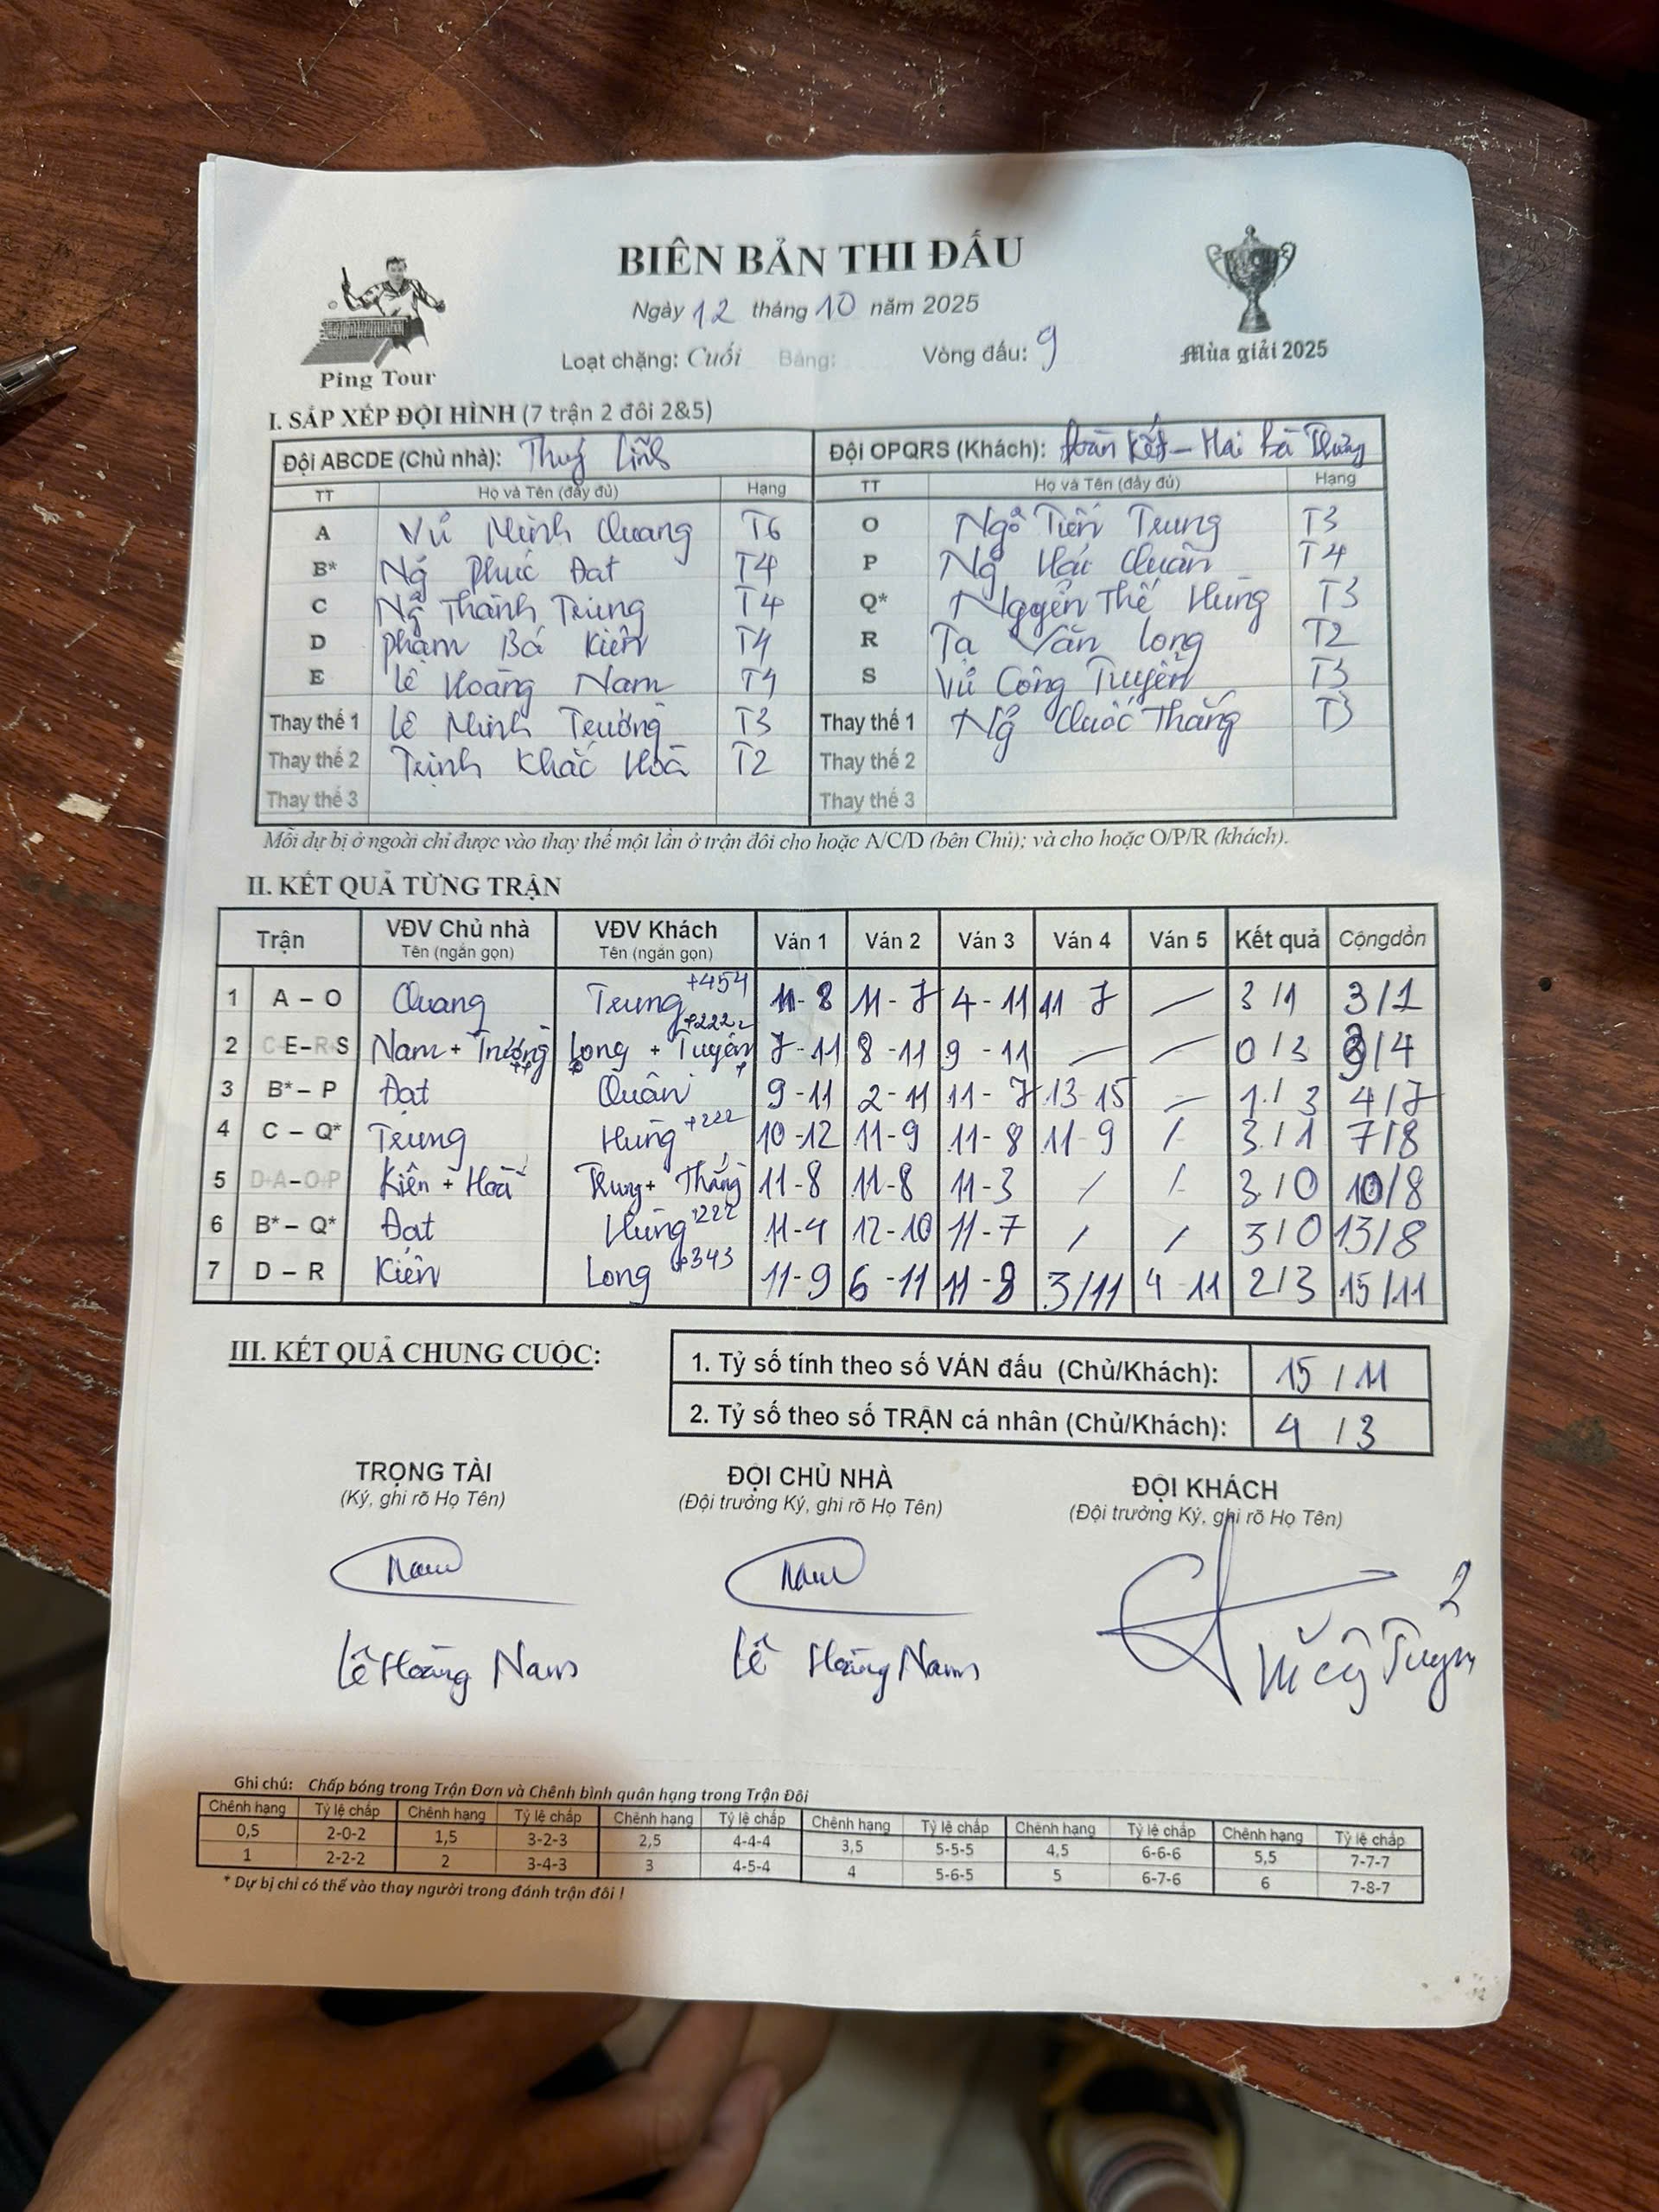 BIÊN BẢN THI ĐẤU
Ngày 12 tháng 10 năm 2025
Loạt chặng: Cuối Bảng: Vòng đấu: 9
Ping Tour
Mùa giải 2025
I. SẮP XẾP ĐỘI HÌNH (7 trận 2 đôi 2&5)
Đội ABCDE (Chủ nhà): Thuỳ Lĩnh Đội OPQRS (Khách): Đoàn Kết - Hai Bà Trưng
TT Họ và Tên (đầy đủ) Hạng TT Họ và Tên (đầy đủ) Hạng
A Vũ Minh Quang T6 O Ngô Tiến Trung T3
B* Ng̃ Phúc Đạt T4 P Ng̃ Hải Quân T4
C Ng̃ Thành Trung T4 Q* Nguyễn Thế Hùng T3
D Phạm Bá Kiên T4 R Tạ Văn Long T2
E Lê Hoàng Nam T4 S Vũ Công Tuyên T3
Thay thế 1 Lê Minh Trường T3 Thay thế 1 Ng̃ Quốc Thắng T3
Thay thế 2 Trịnh Khắc Hoà T2 Thay thế 2
Thay thế 3 Thay thế 3
Mỗi dự bị ở ngoài chỉ được vào thay thế một lần ở trận đôi cho hoặc A/C/D (bên Chủ); và cho hoặc O/P/R (khách).
II. KẾT QUẢ TỪNG TRẬN
Trận VĐV Chủ nhà Tên (ngắn gọn) VĐV Khách Tên (ngắn gọn) Ván 1 Ván 2 Ván 3 Ván 4 Ván 5 Kết quả Cộngdồn
1 A – O Quang Trung +454 11-8 11-7 4-11 11 7 — 3/1 3/1
2 C+E–R+S Nam + Trường Long + Tuyên +222 7-11 8-11 9-11 — — 0/3 3/4
3 B* – P Đạt Quân 9-11 2-11 11-7 13-15 — 1/3 4/7
4 C – Q* Trung Hùng +222 10-12 11-9 11-8 11-9 / 3/1 7/8
5 D+A–O+P Kiên + Hoà Trung + Thắng 11-8 11-8 11-3 / / 3/0 10/8
6 B* – Q* Đạt Hùng +222 11-4 12-10 11-7 / / 3/0 13/8
7 D – R Kiên Long +343 11-9 6-11 11-8 3/11 4-11 2/3 15/11
III. KẾT QUẢ CHUNG CUỘC:
1. Tỷ số tính theo số VÁN đấu (Chủ/Khách): 15 / 11
2. Tỷ số theo số TRẬN cá nhân (Chủ/Khách): 4 / 3
TRỌNG TÀI ĐỘI CHỦ NHÀ ĐỘI KHÁCH
(Ký, ghi rõ Họ Tên) (Đội trưởng Ký, ghi rõ Họ Tên) (Đội trưởng Ký, ghi rõ Họ Tên)
Nam Nam
Lê Hoàng Nam Lê Hoàng Nam
Ghi chú: Chấp bóng trong Trận Đơn và Chênh bình quân hạng trong Trận Đôi
Chênh hạng Tỷ lệ chấp Chênh hạng Tỷ lệ chấp Chênh hạng Tỷ lệ chấp Chênh hạng Tỷ lệ chấp Chênh hạng Tỷ lệ chấp Chênh hạng Tỷ lệ chấp
0,5 2-0-2 1,5 3-2-3 2,5 4-4-4 3,5 5-5-5 4,5 6-6-6 5,5 7-7-7
1 2-2-2 2 3-4-3 3 4-5-4 4 5-6-5 5 6-7-6 6 7-8-7
* Dự bị chỉ có thể vào thay người trong đánh trận đôi !